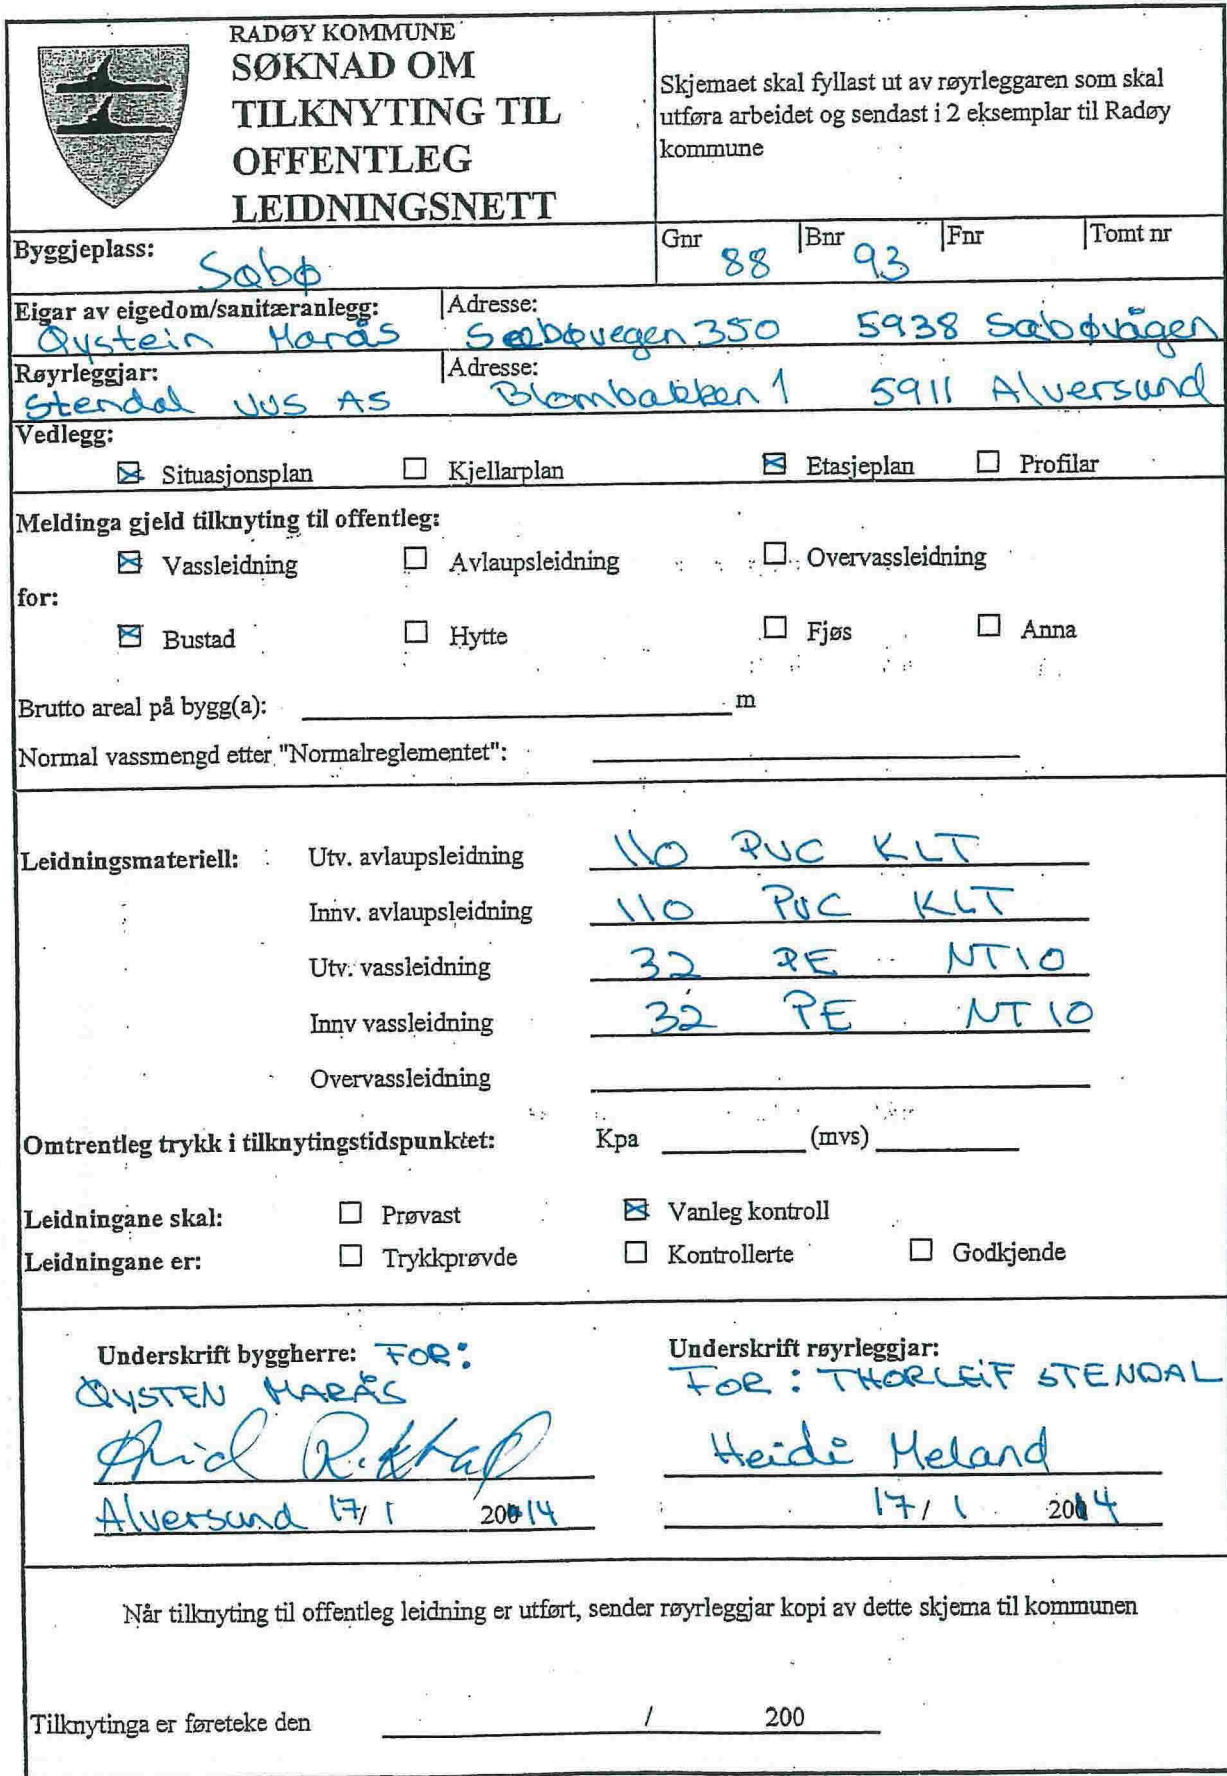 RADØY KOMMUNE
SØKNAD OM
TILKNYTING TIL
OFFENTLEG
LEIDNINGSNETT
Skjemaet skal fyllast ut av røyrleggaren som skal
utføra arbeidet og sendast i 2 eksemplar til Radøy
kommune
Byggjeplass: Sæbø
Gnr 88 Bnr 93 Fnr Tomt nr
Eigar av eigedom/sanitæranlegg: Adresse:
Øystein Marås Sæbøvegen 350 5938 Sæbøvågen
Røyrleggjar: Adresse:
Stendal VVS AS Blombakken 1 5911 Alversund
Vedlegg:
Situasjonsplan Kjellarplan Etasjeplan Profilar
Meldinga gjeld tilknyting til offentleg:
Vassleidning Avlaupsleidning Overvassleidning
for:
Bustad Hytte Fjøs Anna
Brutto areal på bygg(a): m
Normal vassmengd etter "Normalreglementet":
Leidningsmateriell: Utv. avlaupsleidning 110 PVC KLT
Innv. avlaupsleidning 110 PVC KLT
Utv. vassleidning 32 PE NT10
Innv vassleidning 32 PE NT10
Overvassleidning
Omtrentleg trykk i tilknytingstidspunktet: Kpa (mvs)
Leidningane skal: Prøvast Vanleg kontroll
Leidningane er: Trykkprøvde Kontrollerte Godkjende
Underskrift byggherre: FOR:
ØYSTEN MARÅS
Alversund 17/1 2014
Underskrift røyrleggjar:
FOR: THORLEIF STENDAL
Heidi Meland
17/1 2014
Når tilknyting til offentleg leidning er utført, sender røyrleggjar kopi av dette skjema til kommunen
Tilknytinga er føreteke den / 200